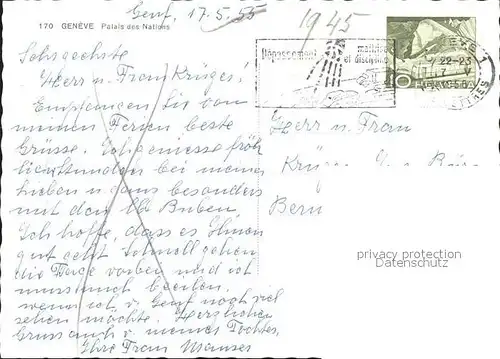 Genf, 17.5.55
1945
170 GENÈVE Palais des Nations
Dépassement
maîtrise
et discipline
22-23
HELVETIA
Sehrgeehrte
Herr u. Frau Krüger!
Empfangen Sie von
meinen Ferien beste
Grüsse. Ich geniesse fröh
liche Stunden bei meinen
lieben u. ganz besonders
mit den lb. Buben.
Ich hoffe, dass es Ihnen
gut geht. Schnell gehen
die Tage vorbei und ich
muss mich beeilen,
wenn ich v. Genf noch viel
sehen möchte. Herzlichen
Gruss auch v. meiner Tochter,
Ihre Frau
Herr u. Frau
Bern
privacy protection
Datenschutz